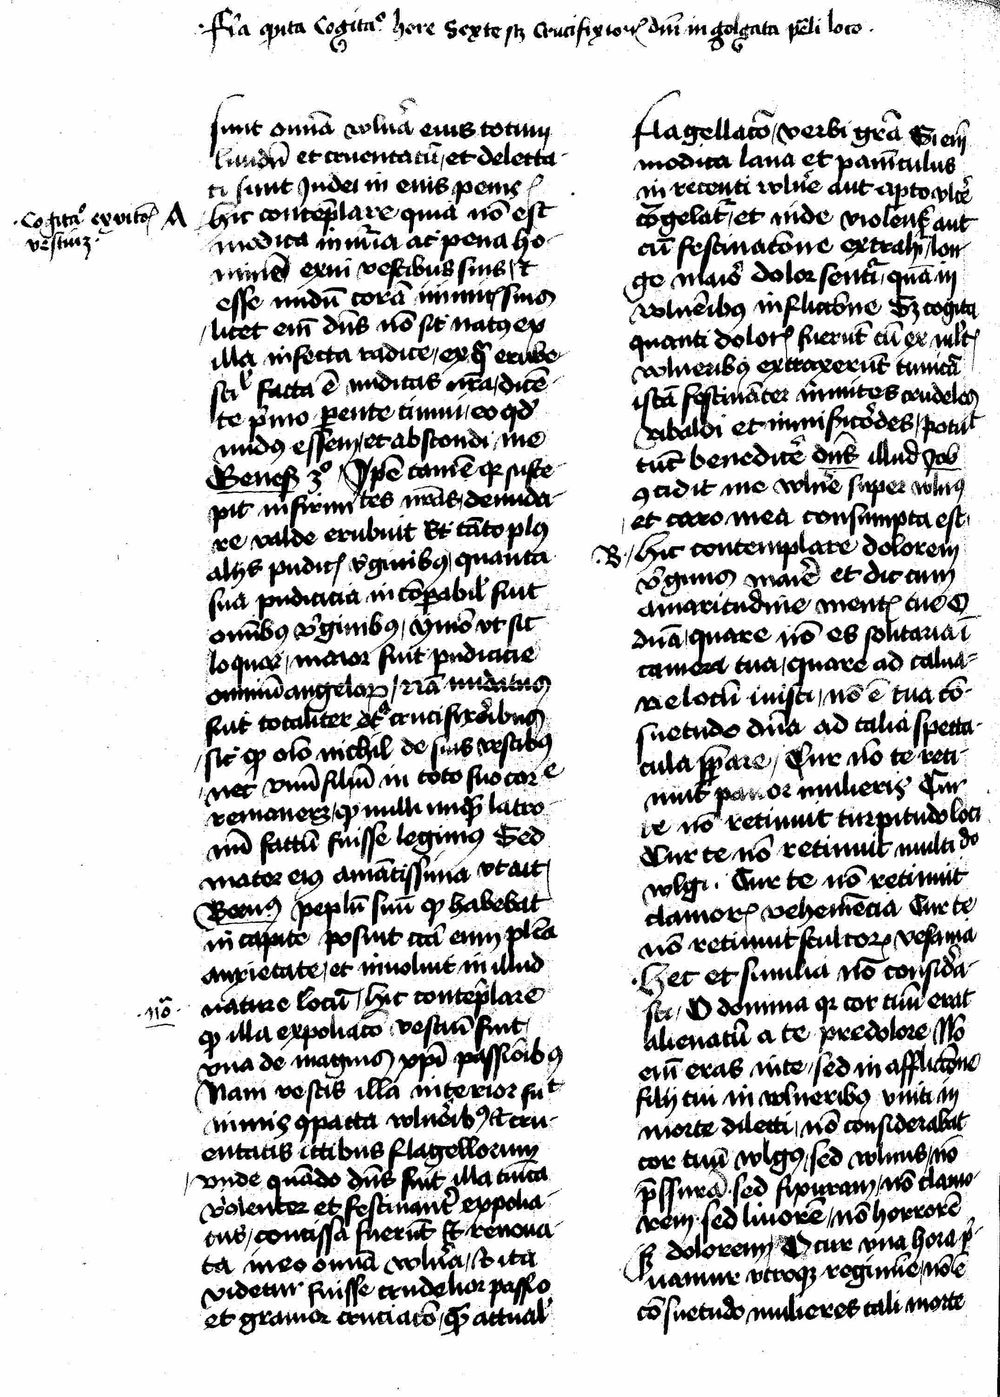 Fīa qīnta Cogita° hore Sexte sꝫ Crucifixioīs dnī in golgata pēli loco.
sunt omīa vulnēa eius totum
liuidū et cruentatū, et delecta-
ti sunt Judei in eius penis
Cogita° exuitoīs
vestimꝫ.
A
hic contēplare quia nō est
modica iniuria ac pena ho-
minē exui vestibus suis, et
esse nudū corā inimicissimis
licet enī dns nō sit natus ex
illa infecta radice, ex qua erube-
scil' facta ē nuditas nra, dicē-
te pīmo parente timui, eo qd'
nudus essem, et abscondi me
Genes 3° Ipē tamē qr susce-
pit infirmitates nrās, denuda-
re valde erubuit Et tāto plus
alijs pudicis vginibus, quanta
sua pudicicia incōpabil' fuit
omībus vginibus, ymo vt sic
loquar, maior fuit pudicicie
omniū angelorꝝ, nā nudatus
fuit totaliter a crucifixoribus
sic qꝫ oīo nichil de suis vestibus
nec vnū filū in toto suo corpore
remaneret, qꝫ nulli unqꝫ latro-
nū factū fuisse legimus Sed
mater eius amātissima vt ait
Bernus peplū suū qꝫ habebat
in capite posuit circa eum plēa
anxietate, et inuoluit in illud
nature locū, hic contēplare
.nō.
qꝫ illa expoliacō vestiū fuit
vna de magnis xpī passiōibus
Nam vestis illa interior fuit
nimis ꝯpacta vulnēibus et cru-
entatis ictibus flagellorum
vnde quādo dns fuit illa tunica
violenter et festinantēr expolia-
tus, concissa fuerūt et renoua-
ta in eo omīa vulnēa, Et ita
videtur fuisse crudelior passio
et grauior cruciatō, qꝫ actual'
flagellacō, verbi grā Si enī
modica lana et panniculus
in recenti vulnēe aut apto vlcē
cōgelatur, et inde violenter aut
cū festinatōne extrahitur, lon-
ge maior dolor sentitur, quā in
vulneribus inflictōne Sꝫ cogita
quanti doloris fuerūt cū ex multis
vulneribus extraxerūt tunicā
istā festinanter inmites crudeles
ribaldi et inmisericordes, potuit
tūc benedicere dns illud Job
ꝯcidit me vulnē super vulnus
et caro mea consumpta est
B.
hic contemplare dolorem
vginis marīe et dic cum
amaritudine mentis tue O
dnā, quare nō es solitaria ī
camera tua, quare ad calua-
rie locū iuisti, nō ē tua cō-
suetudo dnā ad talia specta-
cula sperare, Cur nō te reti-
nuit pauor mulieris Cur
te nō retinuit turpitudo loci
Cur te nō retinuit multi do
vulgi. Cur te nō retinuit
clamoris vehemēcia Cur te
nō retinuit scultorꝝ vesania
hec et similia nō considera-
sti, O domina qr cor tuū erat
alienatū a te pre dolore Nō
enī eras in te, sed in afflictōne
filij tui in vulneribus vnici in
morte dilecti, nō considerabat
cor tuū vulgus, sed vulnus, nō
pressurā, sed fixuram, nō clamo-
rem, sed liuorē, nō horrorē
sꝫ dolorem, O cur vna hora p'-
uamur vtroqꝫ regimīe, nō ē
cōsuetudo mulieres tali morte